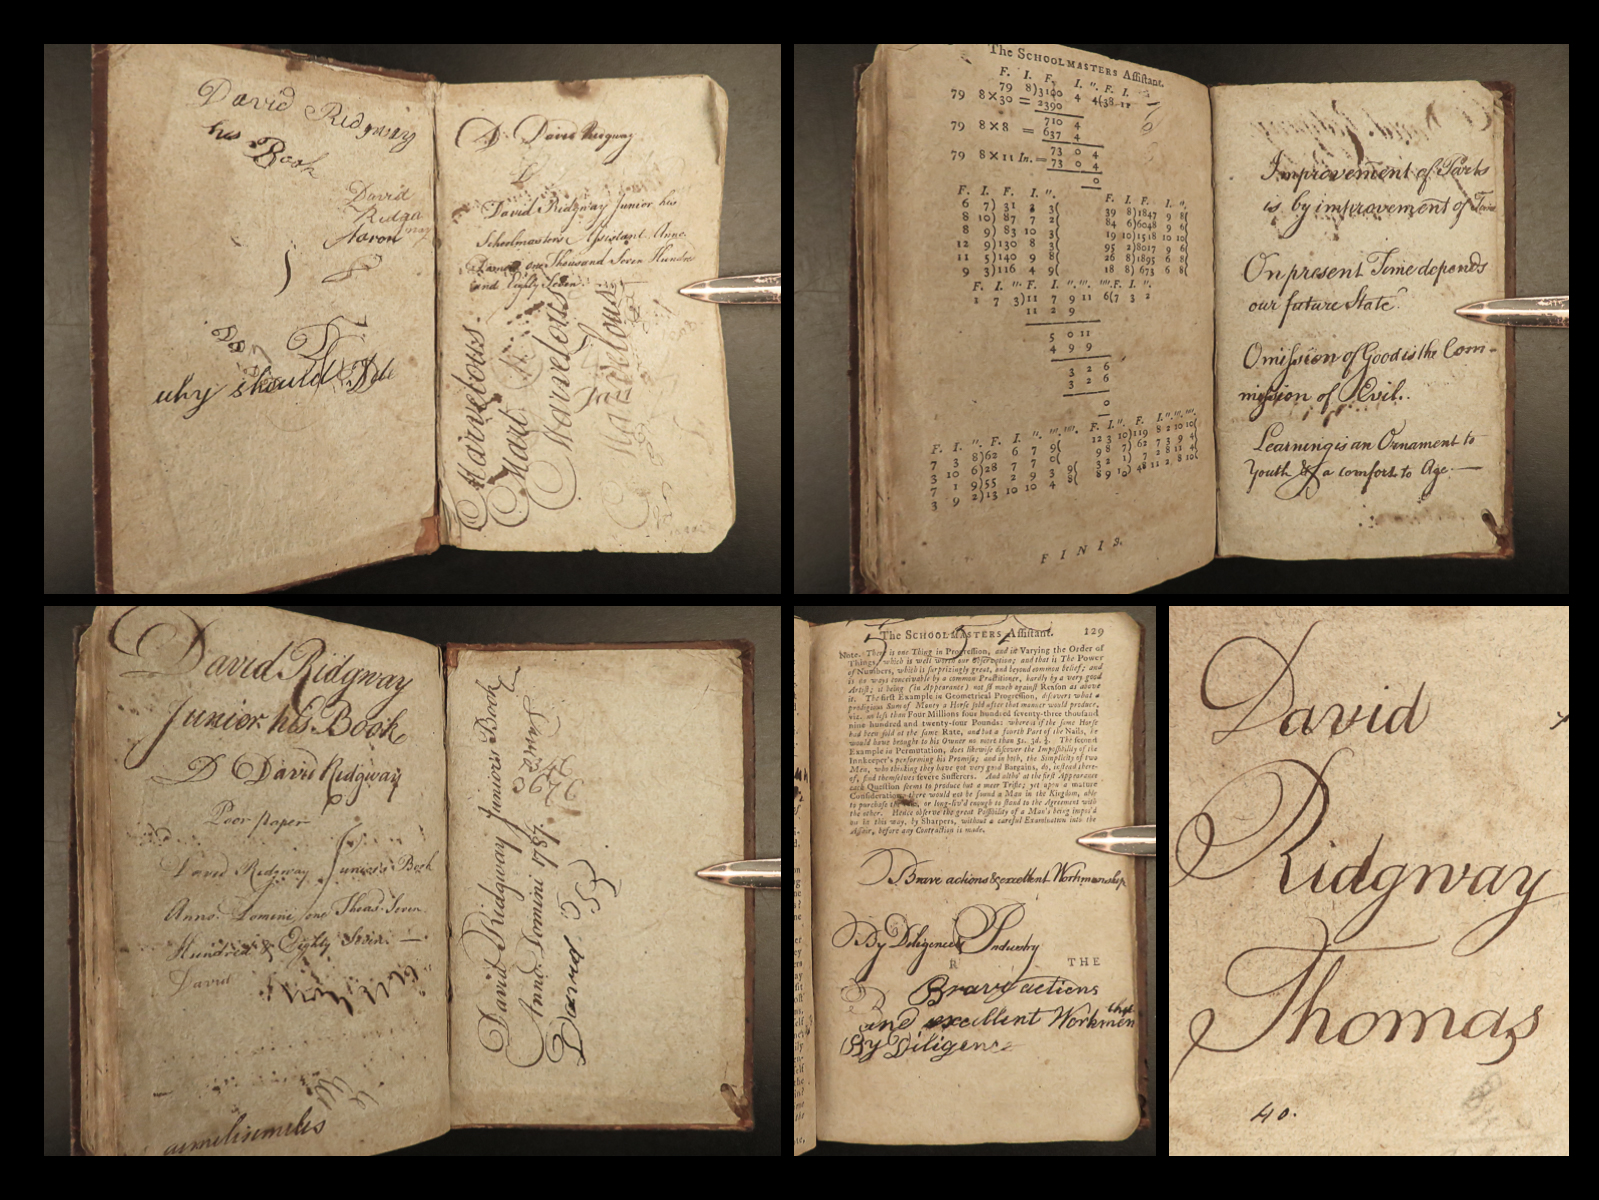 David Ridgway
his Book
David
Ridga
Aaron
why should
D. David Ridgway
David Ridgway Junior his
Schoolmasters Assistant Anno
Domini one Thousand Seven Hundred
and Eighty Seven
Marvelous
Mart
Marvelous
Marvelous
The SCHOOLMASTERS Assistant.
F. I. F. I. ". F. I.
79 8)3100 4 4(38 11
79 8×30 = 2390
710 4
79 8×8 = 637 4
73 0 4
79 8×11 In. = 73 0 4
0
F. I. F. I. ".
6 7) 31 2 3(
8 10) 87 7 2(
8 9) 83 10 3(
12 9)130 8 3(
11 5)140 9 8(
9 3)116 4 9(
39 8)1847 9 8(
84 6)6048 9 6(
19 10)1518 10 10(
95 2)8017 9 6(
26 8)1895 6 8(
18 8) 673 6 8(
1 7 3)11 7 9 11 6(7 3 2
11 2 9
5 0 11
4 9 9
3 2 6
3 2 6
0
7 3 8)62 6 7 9(
3 10 6)28 7 7 0(
7 1 9)55 2 9 3 9(
3 9 2)13 10 10 4 8(
12 3 10)119 8 2 10 10(
9 8 7) 62 7 3 9 4(
3 2 1) 7 2 8 11 4(
8 9 10) 48 11 2 8 10(
FINIS.
Improvement of Parts
is by improvement of Time
On present Time depends
our future State.
Omission of Good is the Com-
mission of Evil.
Learning is an Ornament to
Youth & a comfort to Age.—
David Ridgway
Junior his Book
D David Ridgway
Poor paper
David Ridgway Junior's Book
Anno Domini one Thous. Seven
Hundred & Eighty Seven. —
David
David Ridgway Junior's Book
Anno Domini 1787.
David
3676
The SCHOOLMASTERS Assistant. 129
Note. There is one Thing in Progression, and in Varying the Order of
Things, which is well worth our observation; and that is The Power
of Numbers, which is surprizingly great, and beyond common belief; and
is no ways conceivable by a common Practitioner, hardly by a very good
Artist; it being (in Appearance) not so much against Reason as above
it. The first Example in Geometrical Progression, discovers what a
prodigious Sum of Money a Horse sold after that manner would produce,
viz. no less than Four Millions four hundred seventy-three thousand
nine hundred and twenty-four Pounds: whereas if the same Horse
had been sold at the same Rate, and but a fourth Part of the Nails, he
would have brought to his Owner no more than 5s. 3d. ¾. The second
Example in Permutation, does likewise discover the Impossibility of the
Innkeeper's performing his Promise; and in both, the Simplicity of two
Men, who thinking they have got very good Bargains, do, instead there-
of, find themselves severe Sufferers. And altho' at the first Appearance
each Question seems to produce but a meer Trifle; yet upon a mature
Consideration, there would not be found a Man in the Kingdom, able
to purchase the one, or long-liv'd enough to stand to the Agreement with
the other. Hence observe the great Possibility of a Man's being impos'd
on in this way, by Sharpers, without a careful Examination into the
Affair, before any Contraction is made.
Brave actions & excellent Workmanship
By Diligence & Industry
R THE
Brave actions
and excellent Workmen
By Diligence
David
Ridgway
Thomas
40.